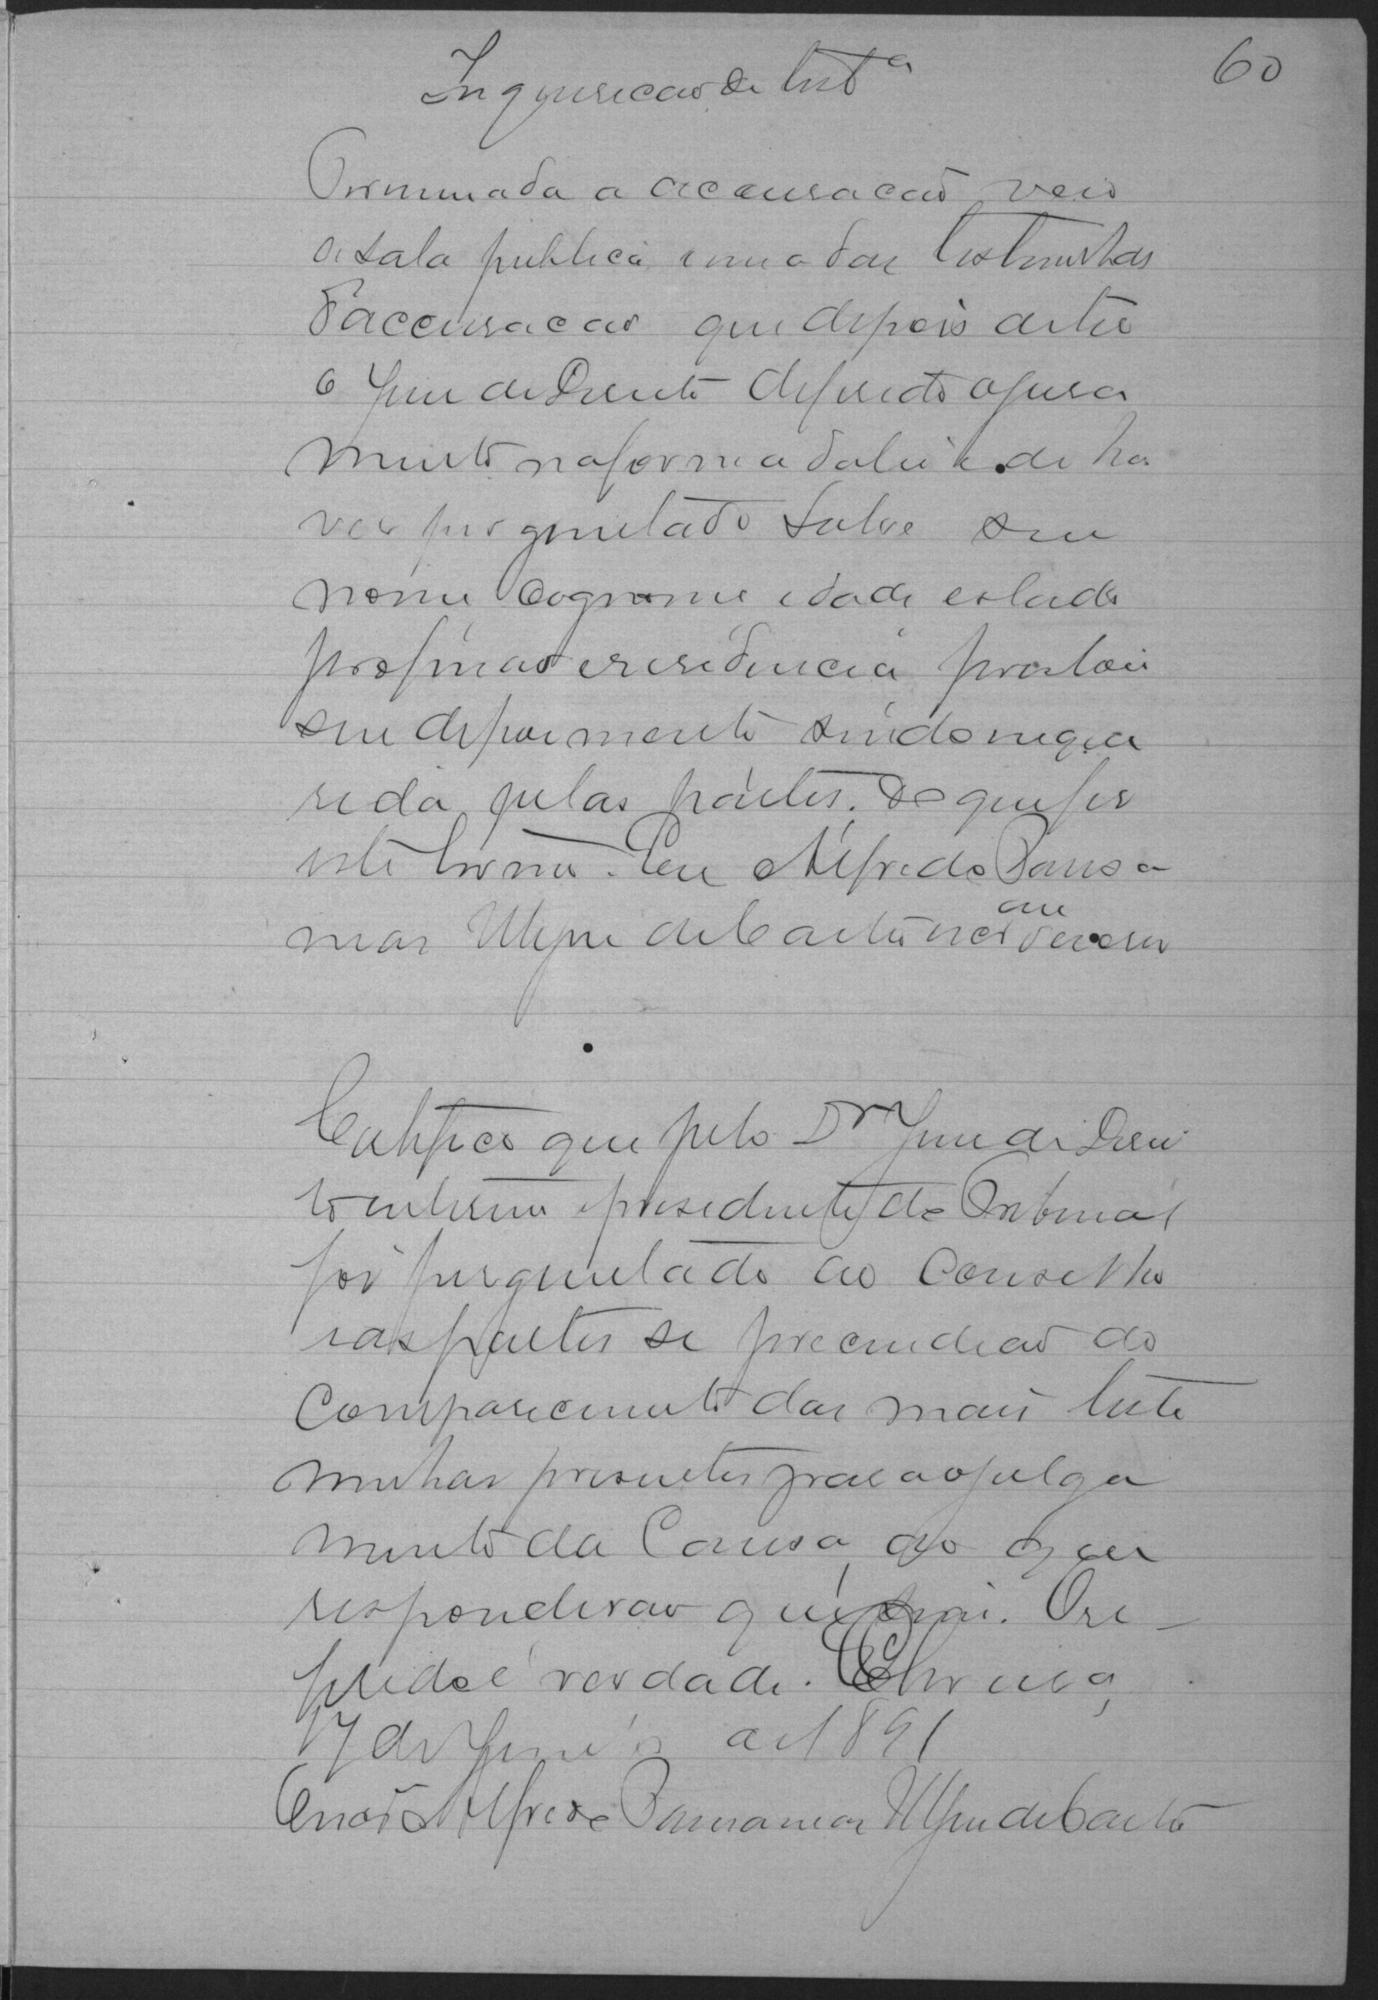 60
Inquirição de testa
Terminada a accusacão veio
a sala publica uma das testemunhas
d'accusacão que depois de ter
o Juiz de Direito deferido o jura
mento na forma da lei e de ha
ver perguntado sobre seu
nome cognome idade estado
profissão e residencia prestou
seu depoimento sendo reque
rida pelas partes. Do que fiz
este termo. Eu Alfredo
de Castro escrivão
que
Certifico que pelo Dr Juiz de Direi
to interino e presidente do Tribunal
foi perguntado ao Conselho
e as partes se precindião do
comparecimento das mais teste
munhas presentes para o julga
mento da Causa, ao que
responderão que sim. O re
ferido é verdade.
17 de de 1891
Escrivão Alfredo de Castro